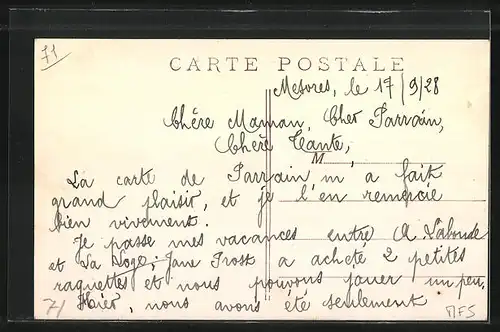 71
CARTE POSTALE
Mesvres, le 17/9/28
Chère Maman, Cher Parrain,
Chère Tante,
M
La carte de Parrain m'a fait
grand plaisir, et je l'en remercie
bien vivement.
Je passe mes vacances entre
et La Loge; Jane Prost a acheté 2 petites
raquettes et nous pouvons jouer un peu.
Hier, nous avons été seulement
71
MFS